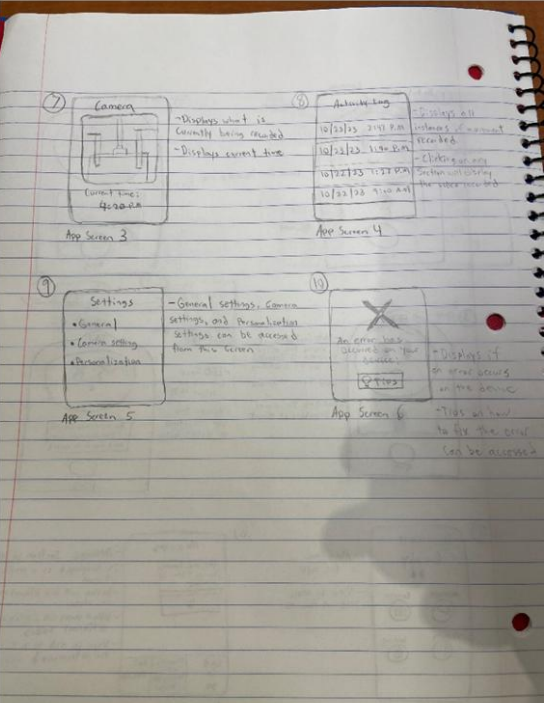 7
Camera
Current time:
4:20 P.M
- Displays what is
currently being recorded
- Displays current time
App Screen 3
8
Activity Log
10/23/23 P.M
10/23/23 P.M
10/22/23 P.M
10/22/23
- Displays all
instances of
recorded
- Clicking on any
Section will display
the video recorded
App Screen 4
9
Settings
• General
• Camera setting
• Personalization
- General settings, Camera
settings, and Personalization
settings can be accessed
from this screen
App Screen 5
10
An error has
occurred on your
device
Tips
- Displays if
an error occurs
on the device
- Tips on how
to fix the error
can be accessed
App Screen 6